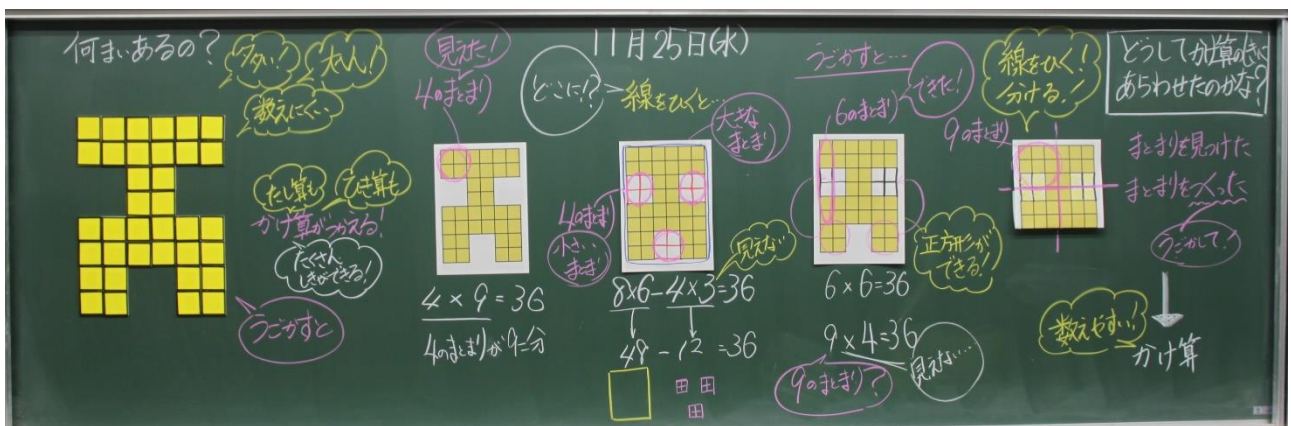 何まいあるの?
多い!
大へん!
数えにくい
たし算も
ひき算も
かけ算がつかえる!
たくさん
しきができる!
うごかすと
見えた!
4のまとまり
4×9=36
4のまとまりが9こ分
11月25日(水)
どこに!?
線をひくと…
大きな
まとまり
4のまとまり
小さい
まとまり
見えない
8×6-4×3=36
48-12=36
うごかすと…
できた!
6のまとまり
正方形が
できる!
6×6=36
9×4=36
9のまとまり?
見えない…
線をひく!
分ける!
9のまとまり
どうしてかけ算のしきに
あらわせたのかな?
まとまりを見つけた
まとまりをつくった
うごかして!
数えやすい!
かけ算